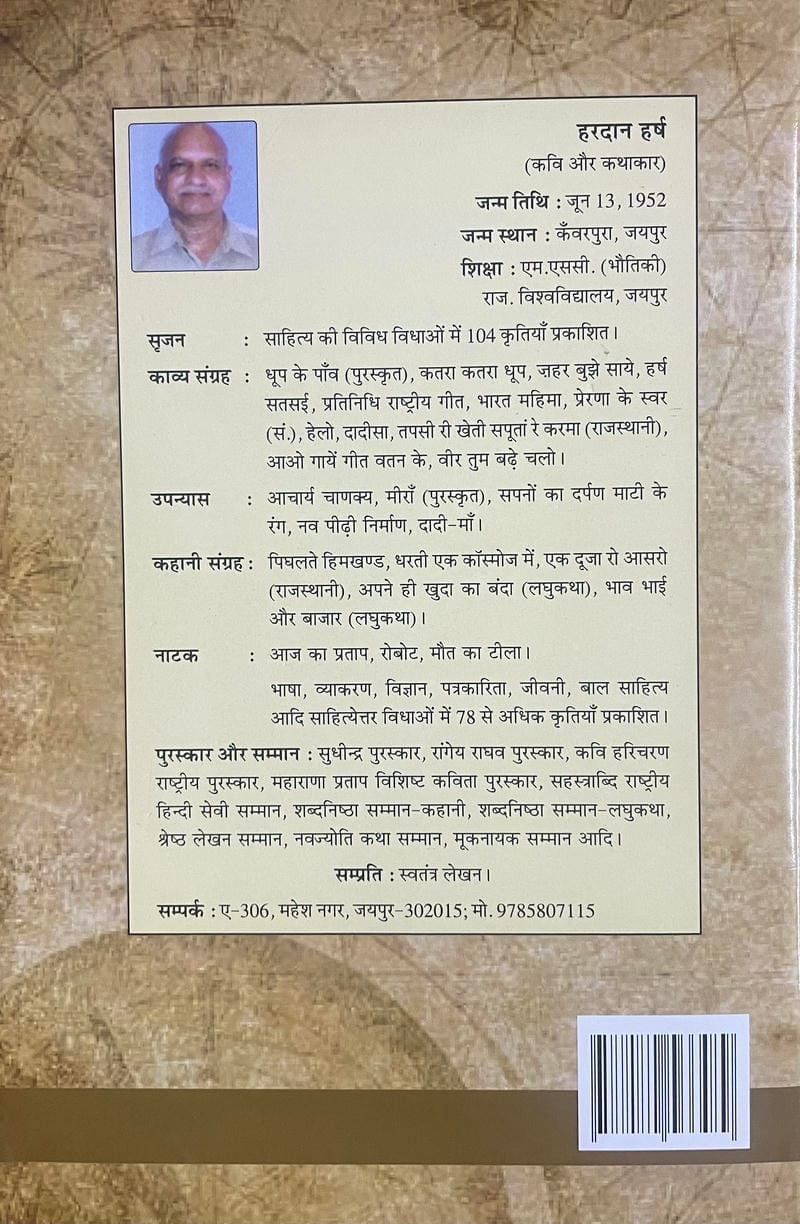 हरदान हर्ष
(कवि और कथाकार)
जन्म तिथि : जून 13, 1952
जन्म स्थान : कँवरपुरा, जयपुर
शिक्षा : एम.एससी. (भौतिकी)
राज. विश्वविद्यालय, जयपुर
सृजन : साहित्य की विविध विधाओं में 104 कृतियाँ प्रकाशित।
काव्य संग्रह : धूप के पाँव (पुरस्कृत), कतरा कतरा धूप, ज़हर बुझे साये, हर्ष
सतसई, प्रतिनिधि राष्ट्रीय गीत, भारत महिमा, प्रेरणा के स्वर
(सं.), हेलो, दादीसा, तपसी री खेती सपूतां रे करमा (राजस्थानी),
आओ गायें गीत वतन के, वीर तुम बढ़े चलो।
उपन्यास : आचार्य चाणक्य, मीराँ (पुरस्कृत), सपनों का दर्पण माटी के
रंग, नव पीढ़ी निर्माण, दादी-माँ।
कहानी संग्रह : पिघलते हिमखण्ड, धरती एक कॉस्मोज में, एक दूजा रो आसरो
(राजस्थानी), अपने ही खुदा का बंदा (लघुकथा), भाव भाई
और बाजार (लघुकथा)।
नाटक : आज का प्रताप, रोबोट, मौत का टीला।
भाषा, व्याकरण, विज्ञान, पत्रकारिता, जीवनी, बाल साहित्य
आदि साहित्येत्तर विधाओं में 78 से अधिक कृतियाँ प्रकाशित।
पुरस्कार और सम्मान : सुधीन्द्र पुरस्कार, रांगेय राघव पुरस्कार, कवि हरिचरण
राष्ट्रीय पुरस्कार, महाराणा प्रताप विशिष्ट कविता पुरस्कार, सहस्त्राब्दि राष्ट्रीय
हिन्दी सेवी सम्मान, शब्दनिष्ठा सम्मान-कहानी, शब्दनिष्ठा सम्मान-लघुकथा,
श्रेष्ठ लेखन सम्मान, नवज्योति कथा सम्मान, मूकनायक सम्मान आदि।
सम्प्रति : स्वतंत्र लेखन।
सम्पर्क : ए-306, महेश नगर, जयपुर-302015; मो. 9785807115